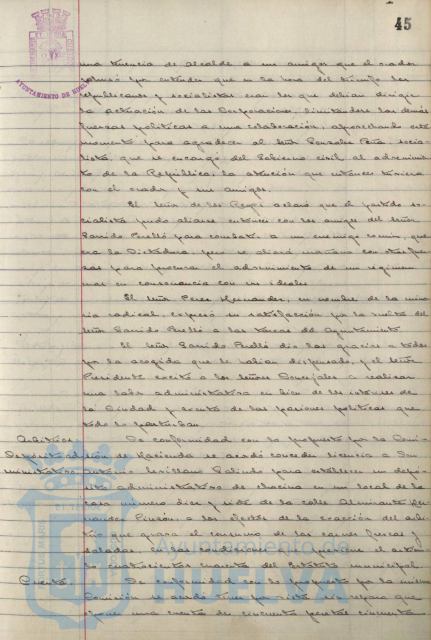 45
AYUNTAMIENTO DE HUELVA
una tenencia de Alcalde a un amigo que el orador
por entender que en la hora del triunfo los
republicanos y socialistas eran los que debian dirigir
la actuación de las Corporaciones, limitandose las demás
fuerzas politicas a una colaboración, aprovechando este
momento para agradecer al Señor Gonzalez Peña, socia-
lista, que se encargó del Gobierno civil al advenimien-
to de la Republica, la atención que entonces tuviera
con el orador y sus amigos.
El Señor de los Reyes aclaró que el partido so-
cialista pudo aliarse entonces con los amigos del Señor
Garrido Perelló para combatir a un enemigo común, que
era la Dictadura, pero se aliará mañana con otras fuer-
zas para procurar el advenimiento de un régimen
mas en consonancia con sus ideales.
El Señor Perez Hernandez, en nombre de la mino-
ria radical, expresó su satisfacción por la vuelta del
Señor Garrido Perelló a las tareas del Ayuntamiento.
El Señor Garrido Perelló dió las gracias a todos
por la acogida que le habian dispensado, y el Señor
Presidente excitó a los Señores Concejales a realizar
una labor administrativa en bien de los intereses de
la Ciudad y exenta de las pasiones politicas que
todo lo perturban.
Arbitrios De conformidad con lo propuesto por la Comi-
Deposito ad- sión de Hacienda se acordó conceder licencia a Don
ministrativo Antonio Sevillano Galindo para establecer un depó-
sito administrativo de chacina en un local de la
casa numero diez y siete de la calle Almirante Her-
nandez Pinzón, a los efectos de la exacción del arbi-
trio que grava el consumo de las carnes frescas y
saladas, en las condiciones que previene el articu-
lo cuatrocientos cuarenta del Estatuto municipal.
Cuenta. De conformidad con lo propuesto por la misma
Comisión se acordó
una cuenta de cincuenta pesetas cincuenta
Ayuntamiento de
HUELVA